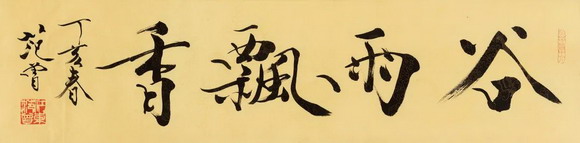 谷雨飘香
丁亥春
范曾